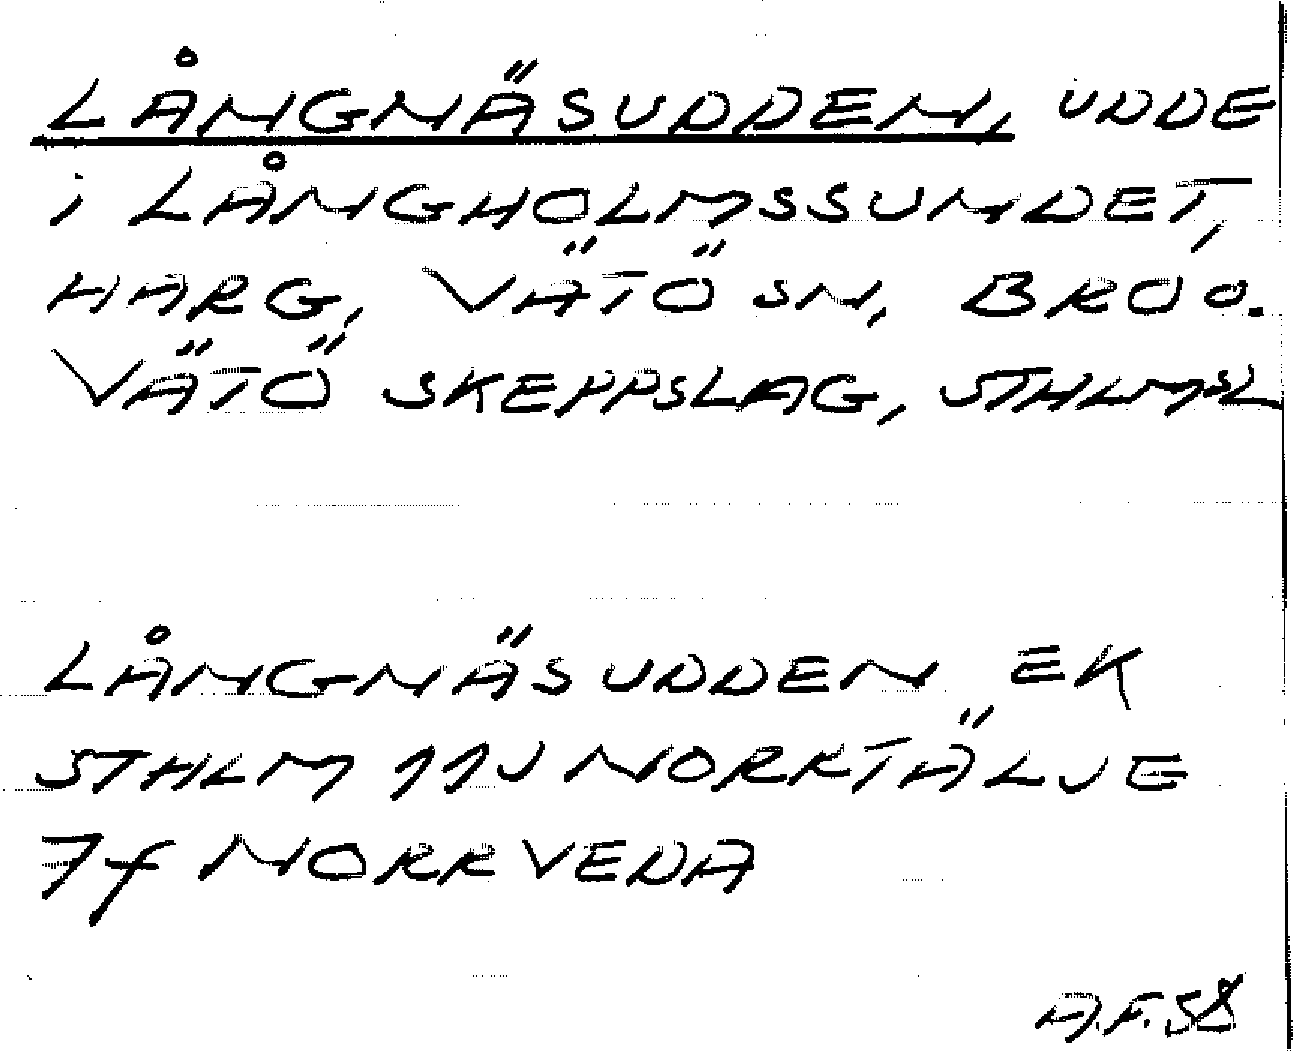 LÅNGNÄSUDDEN, UDDE
i LÅNGHOLMSSUNDET,
HARG, VÄTÖ SN, BRO O.
VÄTÖ SKEPPSLAG, STHLMSL
LÅNGNÄSUDDEN EK
STHLM 11J NORRTÄLJE
7f NORRVEDA
A.F.58